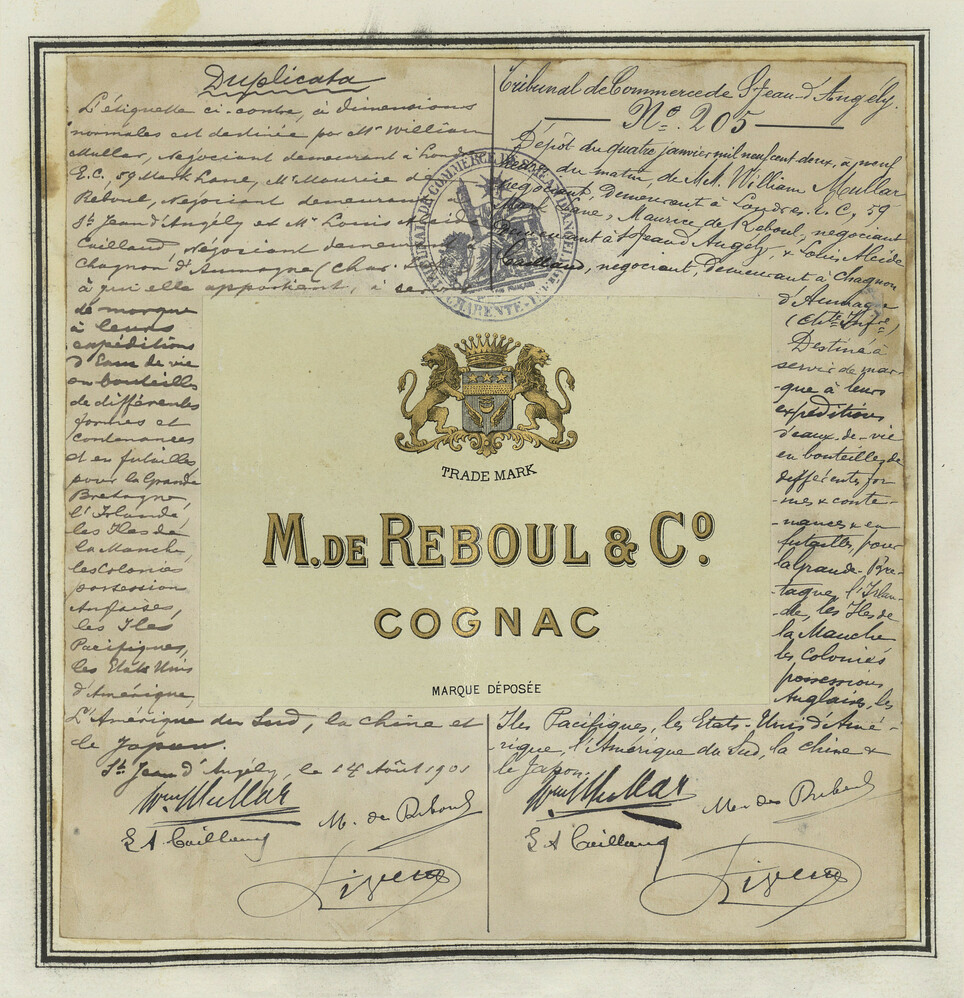 Duplicata
L'étiquette ci-contre, à dimensions
normales est destinée par Mr William
Mullar, Négociant demeurant à Lond
E.C. 59 Mark Lane, Mr Maurice de
Reboul, Négociant demeurant
St Jean d'Angély et Mr Louis
Cuilland, Négociant demeu
Chagnon d'Aumagne (Char.
à qui elle appartient, à ser
de marque
à leurs
expéditions
d'Eaux de vie
en bouteilles
de différentes
formes et
contenances
et en futailles
pour la Grande
Bretagne,
l'Irlande,
les Iles de
la Manche,
les Colonies
possession
Anglaises,
les Iles
Pacifiques,
les Etats Unis
d'Amérique,
L'Amérique du Sud, la Chine et
le Japon.
St Jean d'Angély, le 14 Août 1901
Wm Mullar
M. de Reboul
L A Cuilland
Tribunal de Commerce de St Jean d'Angély.
No. 205
Dépôt du quatre janvier mil neuf cent deux, à neuf
du matin, de MM. William Mullar
négociant, demeurant à Londres E.C, 59
Mark Lane, Maurice de Reboul, négociant
demeurant à St Jean d'Angély, & Louis Alcide
Cuilland, négociant, demeurant à Chagnon
d'Aumagne
(Chte Infre)
Destiné à
servir de mar-
-que à leurs
expéditions
d'eaux-de-vie
en bouteilles de
différentes for
-mes & conte-
-nances & en
futailles, pour
la Grande-Bre-
-tagne, l'Irlan-
-de, les Iles de
la Manche
les Colonies
possessions
Anglaises, les
Iles Pacifiques, les Etats-Unis d'Amé-
-rique, l'Amérique du Sud, la Chine &
le Japon.
Wm Mullar
M. de Reboul
L A Cuilland
TRIBUNAL DE COMMERCE DE ST JEAN D'ANGELY
CHARENTE-INFRE
TRADE MARK
M. DE REBOUL & Co.
COGNAC
MARQUE DÉPOSÉE